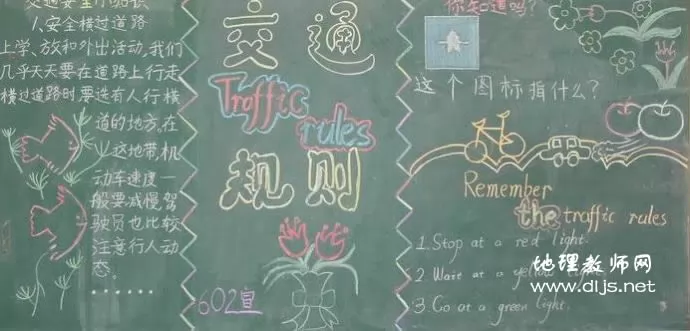 交通安全小知识
1、安全横过道路
上学、放和外出活动,我们
几乎天天要在道路上行走
横过道路时要选有人行横
道的地方,在
这地带,机
动车速度一
般要减慢驾
驶员也比较
注意行人动
态。
......
交通
Traffic
rules
规则
602宣
你知道吗?
这个图标指什么?
Remember
the traffic rules
1. Stop at a red light.
2. Wait at a yellow light.
3. Go at a green light.
地理教师网
www.dljs.net